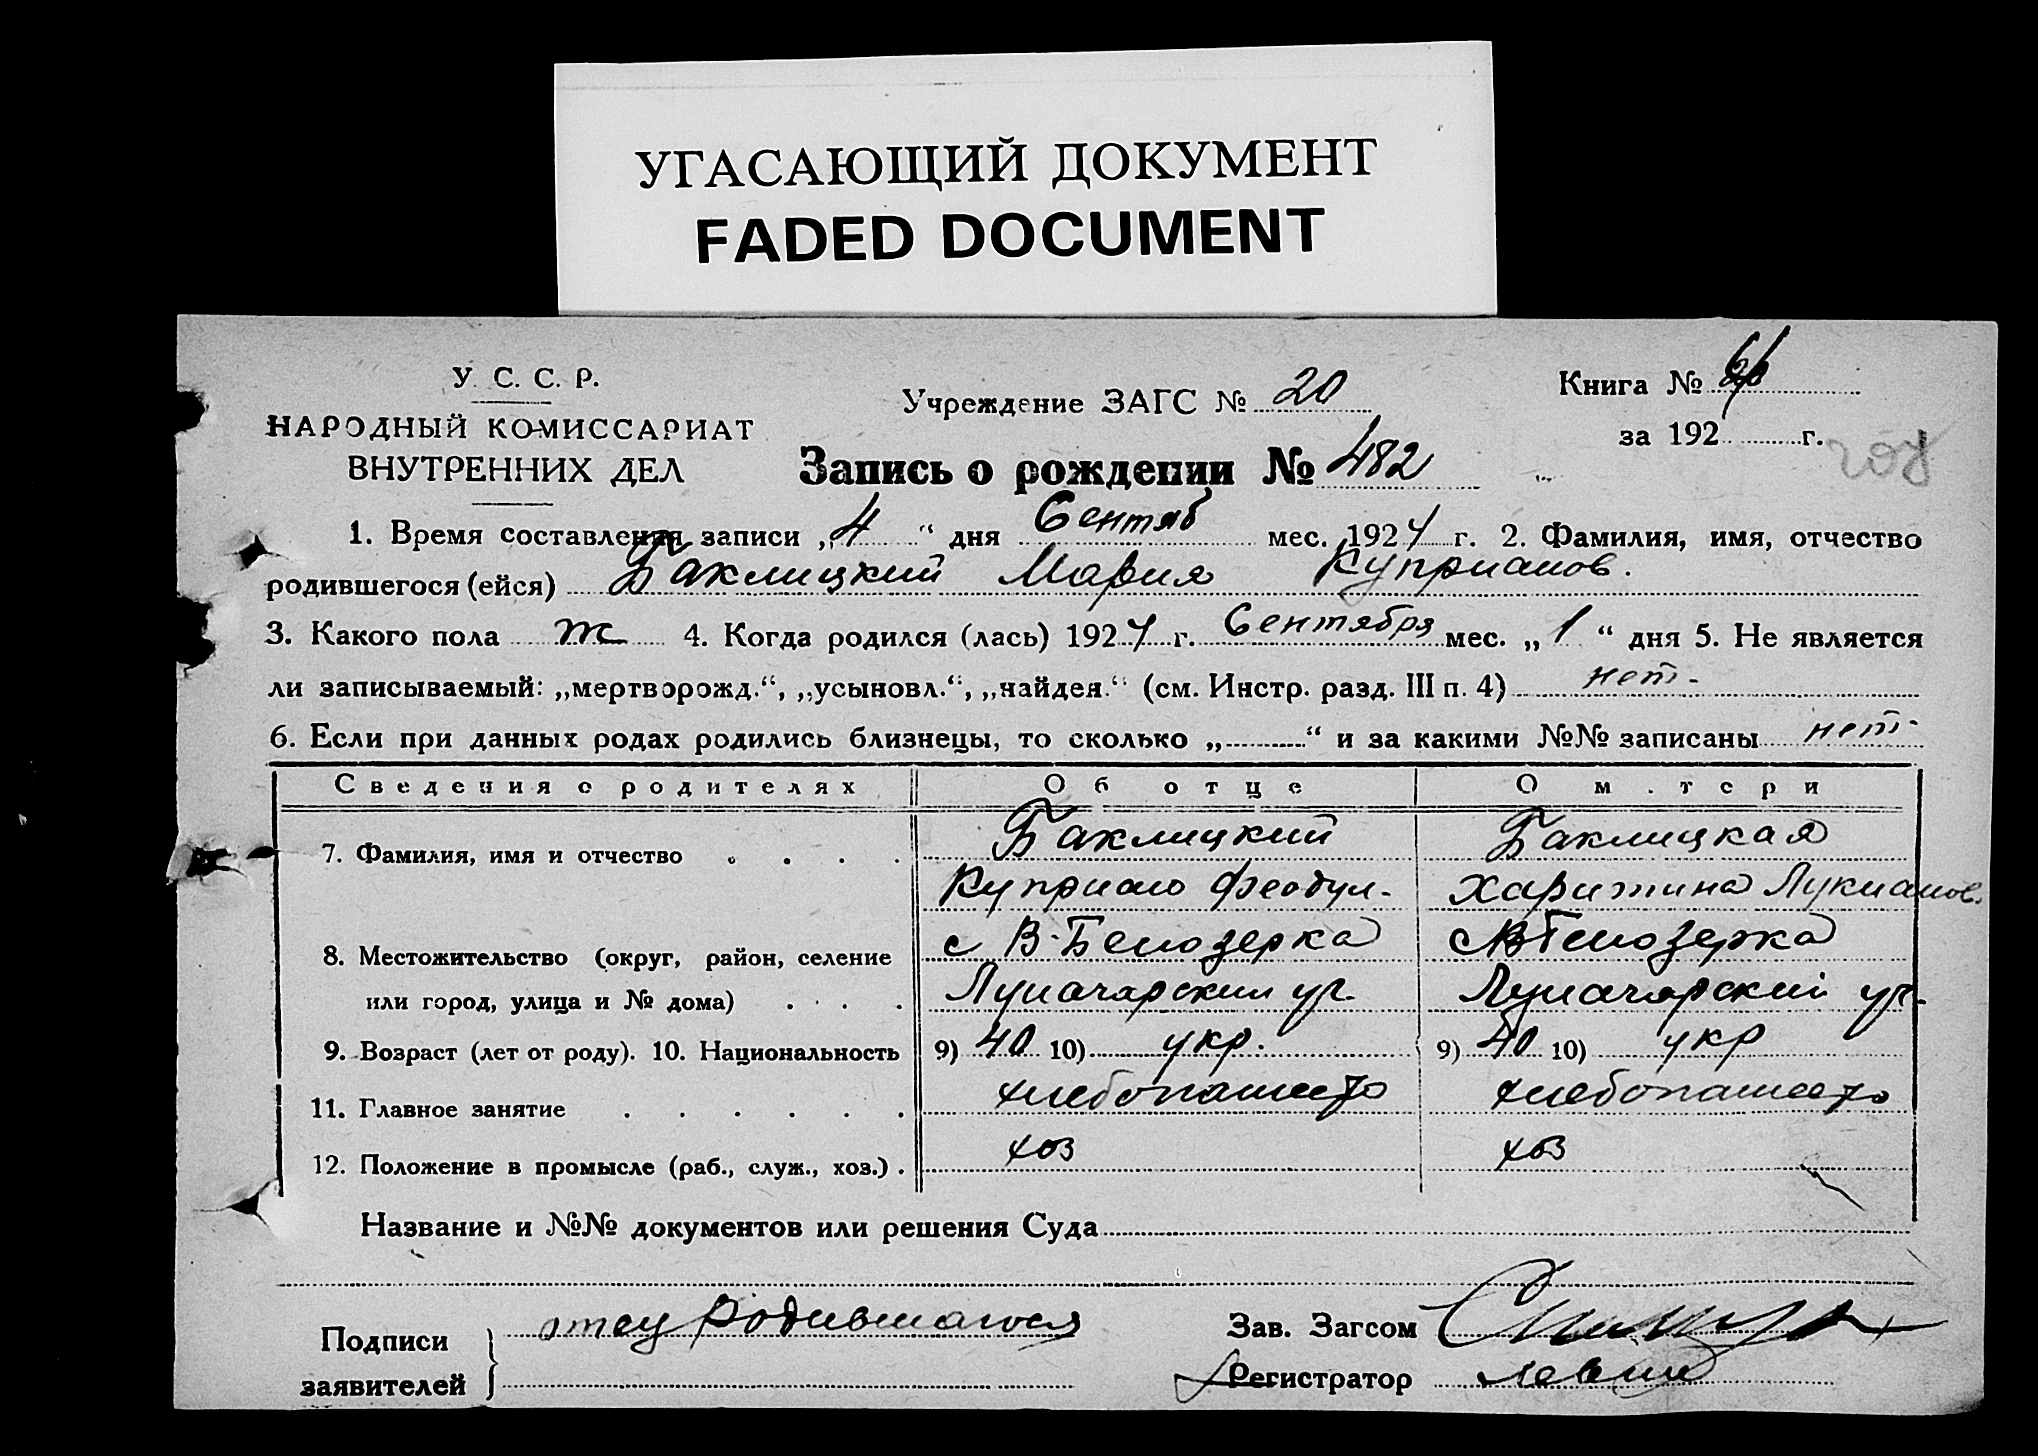 УГАСАЮЩИЙ ДОКУМЕНТ
FADED DOCUMENT
У. С. С. Р.
НАРОДНЫЙ КОМИССАРИАТ
ВНУТРЕННИХ ДЕЛ
Учреждение ЗАГС № 20
Книга №
за 192 г.
Запись о рождении № 482
1. Время составления записи „4“ дня Сентяб мес. 1924 г. 2. Фамилия, имя, отчество
родившегося (ейся) Баклицкий Мария Куприанов.
3. Какого пола ж 4. Когда родился (лась) 1924 г. Сентября мес. „1“ дня 5. Не является
ли записываемый: „мертворожд.“, „усыновл.“, „найден.“ (см. Инстр. разд. III п. 4) нет.
6. Если при данных родах родились близнецы, то сколько „ “ и за какими №№ записаны нет
Сведения о родителях Об отце О м.тери
7. Фамилия, имя и отчество Баклицкий Баклицкая
Куприан Феодул. Харитина Лукианов.
8. Местожительство (округ, район, селение с В-Белозерка с В Белозерка
или город, улица и № дома) Луначарский ул. Луначарский ул.
9. Возраст (лет от роду). 10. Национальность 9) 40 10) укр. 9) 40 10) укр
11. Главное занятие хлебопашество хлебопашество
12. Положение в промысле (раб., служ., хоз.) хоз хоз
Название и №№ документов или решения Суда
Подписи
заявителей
отец родившагося
Зав. Загсом
Регистратор